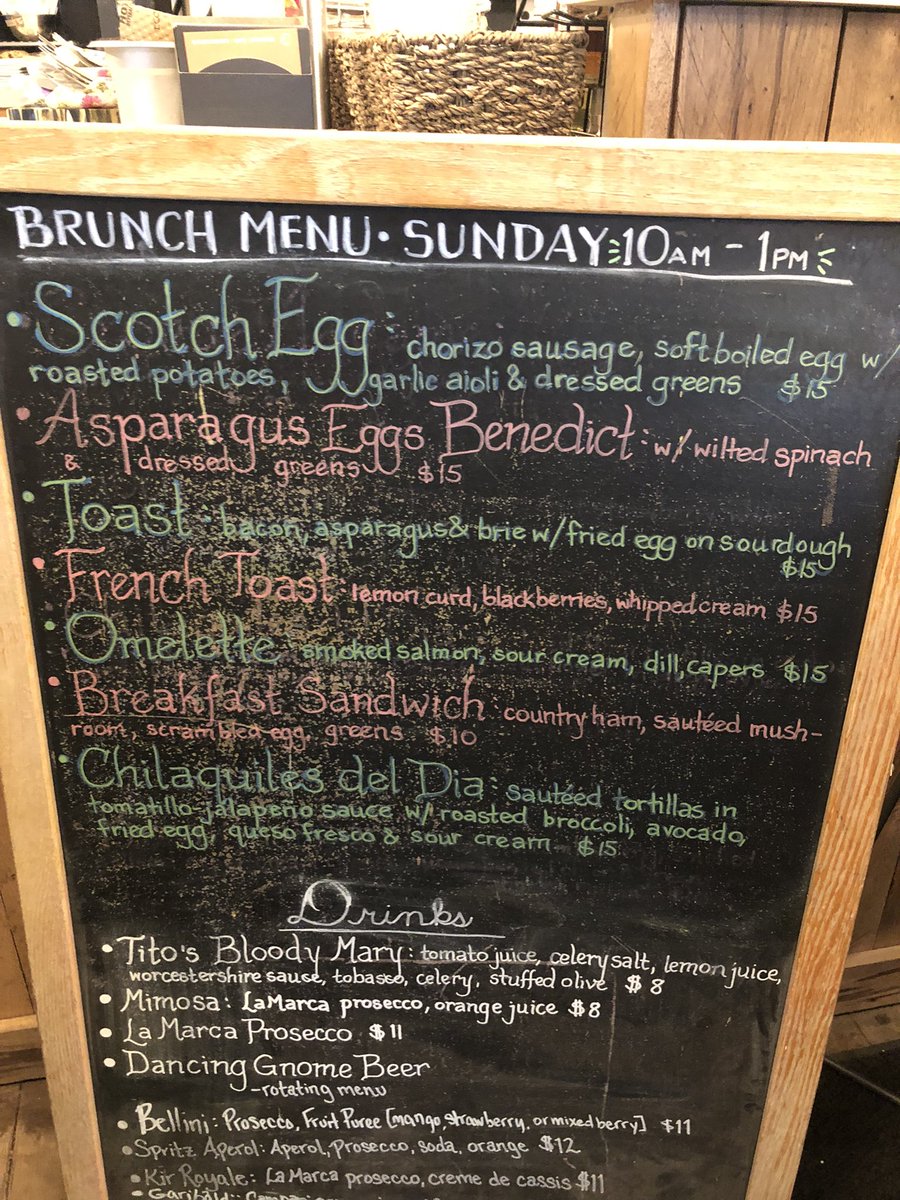 BRUNCH MENU • SUNDAY 10AM - 1PM
• Scotch Egg: chorizo sausage, soft boiled egg w/
roasted potatoes, garlic aioli & dressed greens $15
• Asparagus Eggs Benedict: w/ wilted spinach
& dressed greens $15
• Toast: bacon, asparagus & brie w/ fried egg on sourdough
$15
• French Toast: lemon curd, blackberries, whipped cream $15
• Omelette smoked salmon, sour cream, dill, capers $15
• Breakfast Sandwich: country ham, sautéed mush-
room, scrambled egg, greens $10
• Chilaquiles del Dia: sautéed tortillas in
tomatillo-jalapeño sauce w/ roasted broccoli, avocado,
fried egg, queso fresco & sour cream $15
Drinks
• Tito's Bloody Mary: tomato juice, celery salt, lemon juice,
worcestershire sause, tobasso, celery, stuffed olive $8
• Mimosa: LaMarca prosecco, orange juice $8
• La Marca Prosecco $11
• Dancing Gnome Beer
-rotating menu
• Bellini: Prosecco, Fruit Puree [mango, strawberry, or mixed berry] $11
• Spritz Aperol: Aperol, Prosecco, soda, orange $12
• Kir Royale: La Marca prosecco, creme de cassis $11
• Garibaldi: